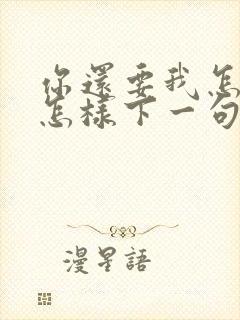 你還要我怎
怎樣下一句
漫星語